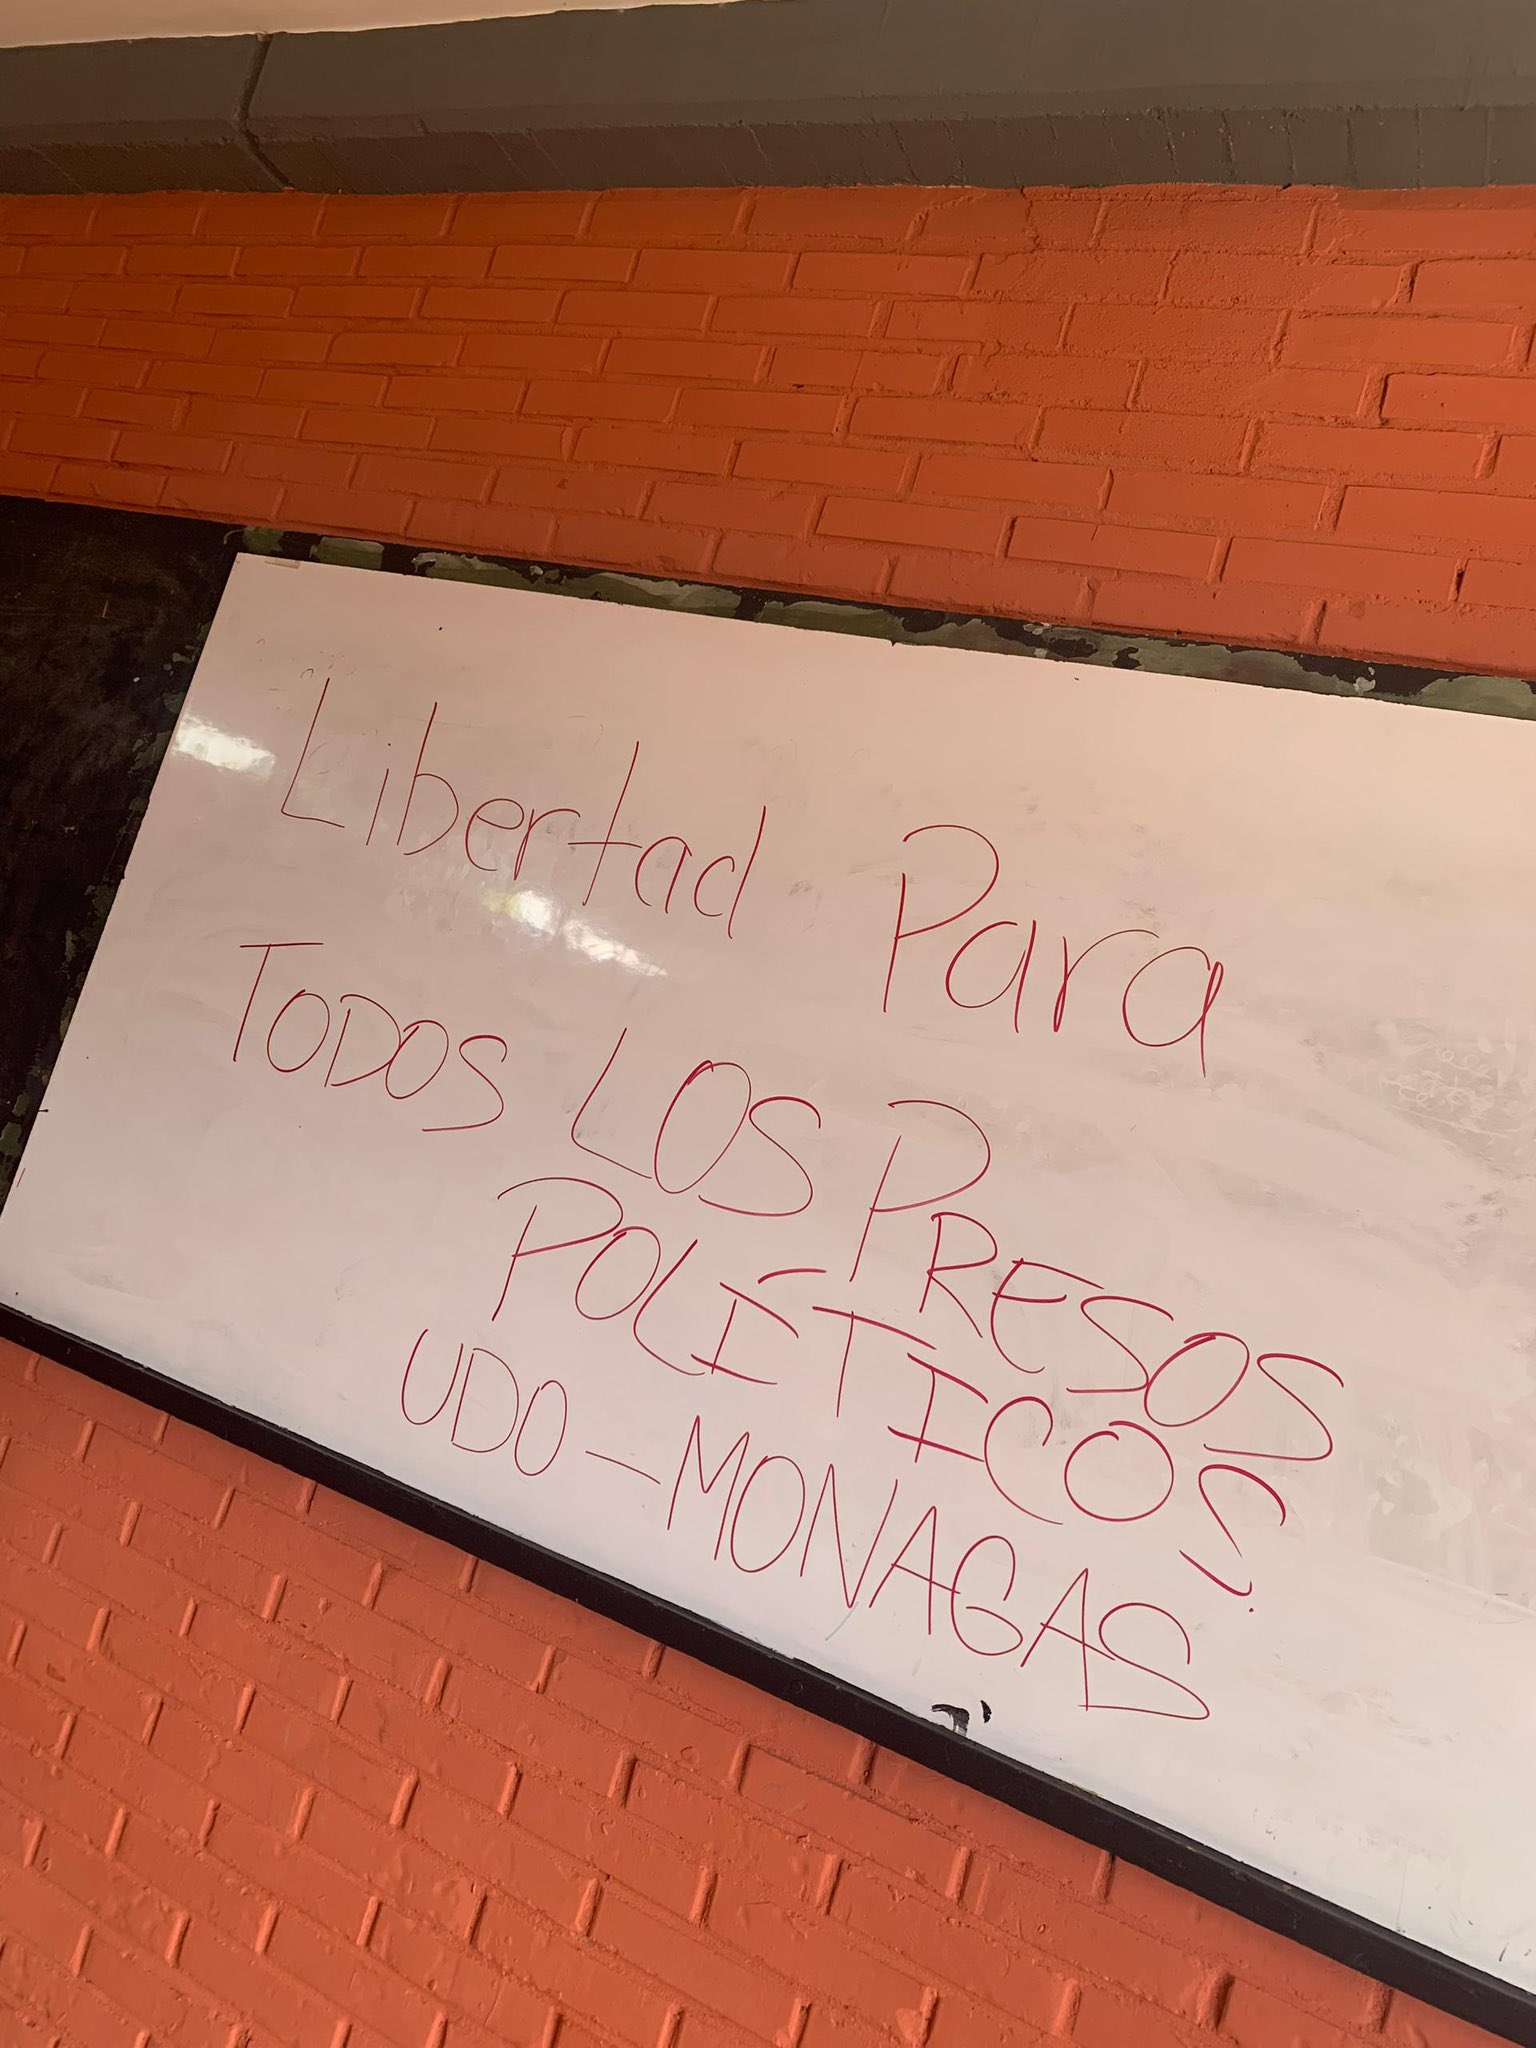 Libertad Para
TODOS LOS PRESOS
POLÍTICOS
UDO-MONAGAS